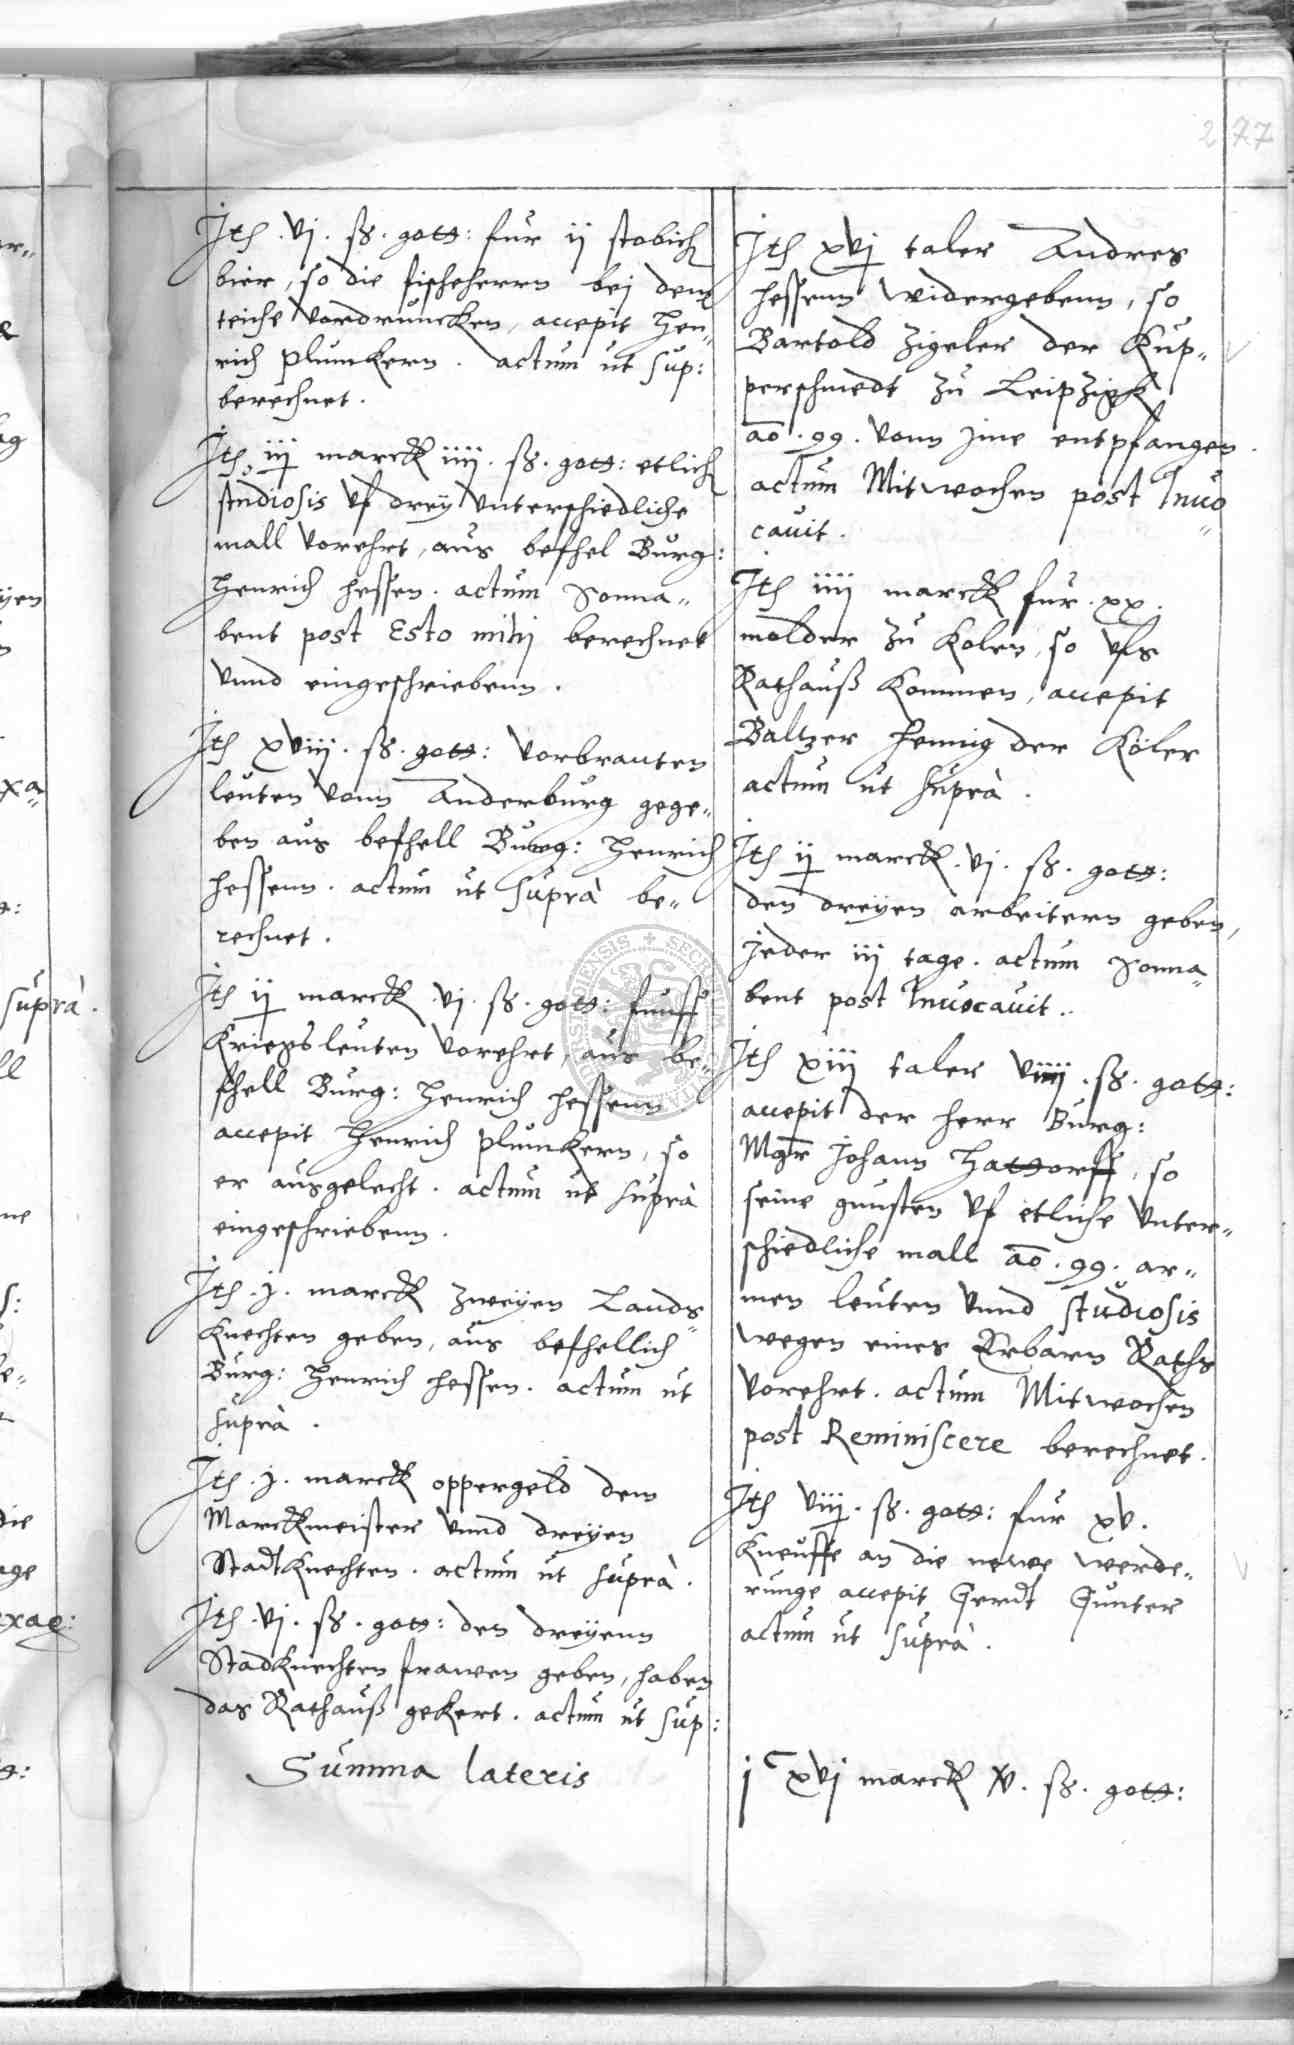 277
Ith. vj. ß. gott: fur ij stobich
bier, so die fischeherrn bej dem
teiche vordruncken, accepit Hen„
rich Plumkern. actum ut sup:
berechnet.
Ith iij marck iiij. ß. gott: etlich
studiosis vf dreÿ unterschiedliche
mall vorehrt, aus befhel Burg:
Henrich Hessen. actum Sonna„
bent post Esto mihj berechnet
vnnd eingeschriebenn.
Ith xviij. ß. gott: vorbranten
leuten vonn Anderburg gege„
ben aus befhell Burg: Henrich
Hessenn. actum ut suprà be„
rechnet.
Ith ij marck. vj. ß. gott: funff
Kriegsleuten vorehrt, aus be„
fhell Burg: Henrich Hessenn
accepit Henrich Plumkern, so
er ausgelecht. actum ut suprà
eingeschriebenn.
Ith. j. marck zweÿen Lands„
knechten geben, aus befhellich
Burg: Henrich Hessen. actum ut
suprà.
Ith. j. marck oppergeld dem
Marckmeister vnnd dreÿen
Stadtknechten. actum ut suprà.
Ith. vj. ß. gott: den dreÿenn
Stadknechten frawen geben, haben
das Rathauß gekert. actum ut sup:
Summa lateris
Ith xvj taler Andres
Hessenn widergebenn, so
Bartold Zigeler der Kup„
perschmedt zu Leipzigk
ao. 99. vonn jme entpfangen.
actum Mitwochen post Inuo„
cauit.
Ith iiij marck fur. xx.
molder zu Kolen, so vfs
Rathauß kommen, accepit
Baltzer Hennig der Köler
actum ut suprà.
Ith ij marck. vj. ß. gott:
den dreÿen arbeitern geben,
jeder iij tage. actum Sonna„
bent post Inuocauit.
Ith xiij taler viiij. ß. gott:
accepit der herr Burg:
Mgr Johann Hattorff, so
seine gunsten vf etliche vnter„
schiedliche mall ao. 99. ar„
men leuten vnnd studiosis
wegen eines Erbarn Raths
vorehrt. actum Mitwochen
post Reminiscere berechnet.
Ith viij. ß. gott: fur xv.
Kneuffe an die newe werde„
runge accepit Gerdt Gunter
actum ut suprà.
jC xvj marck v. ß. gott: